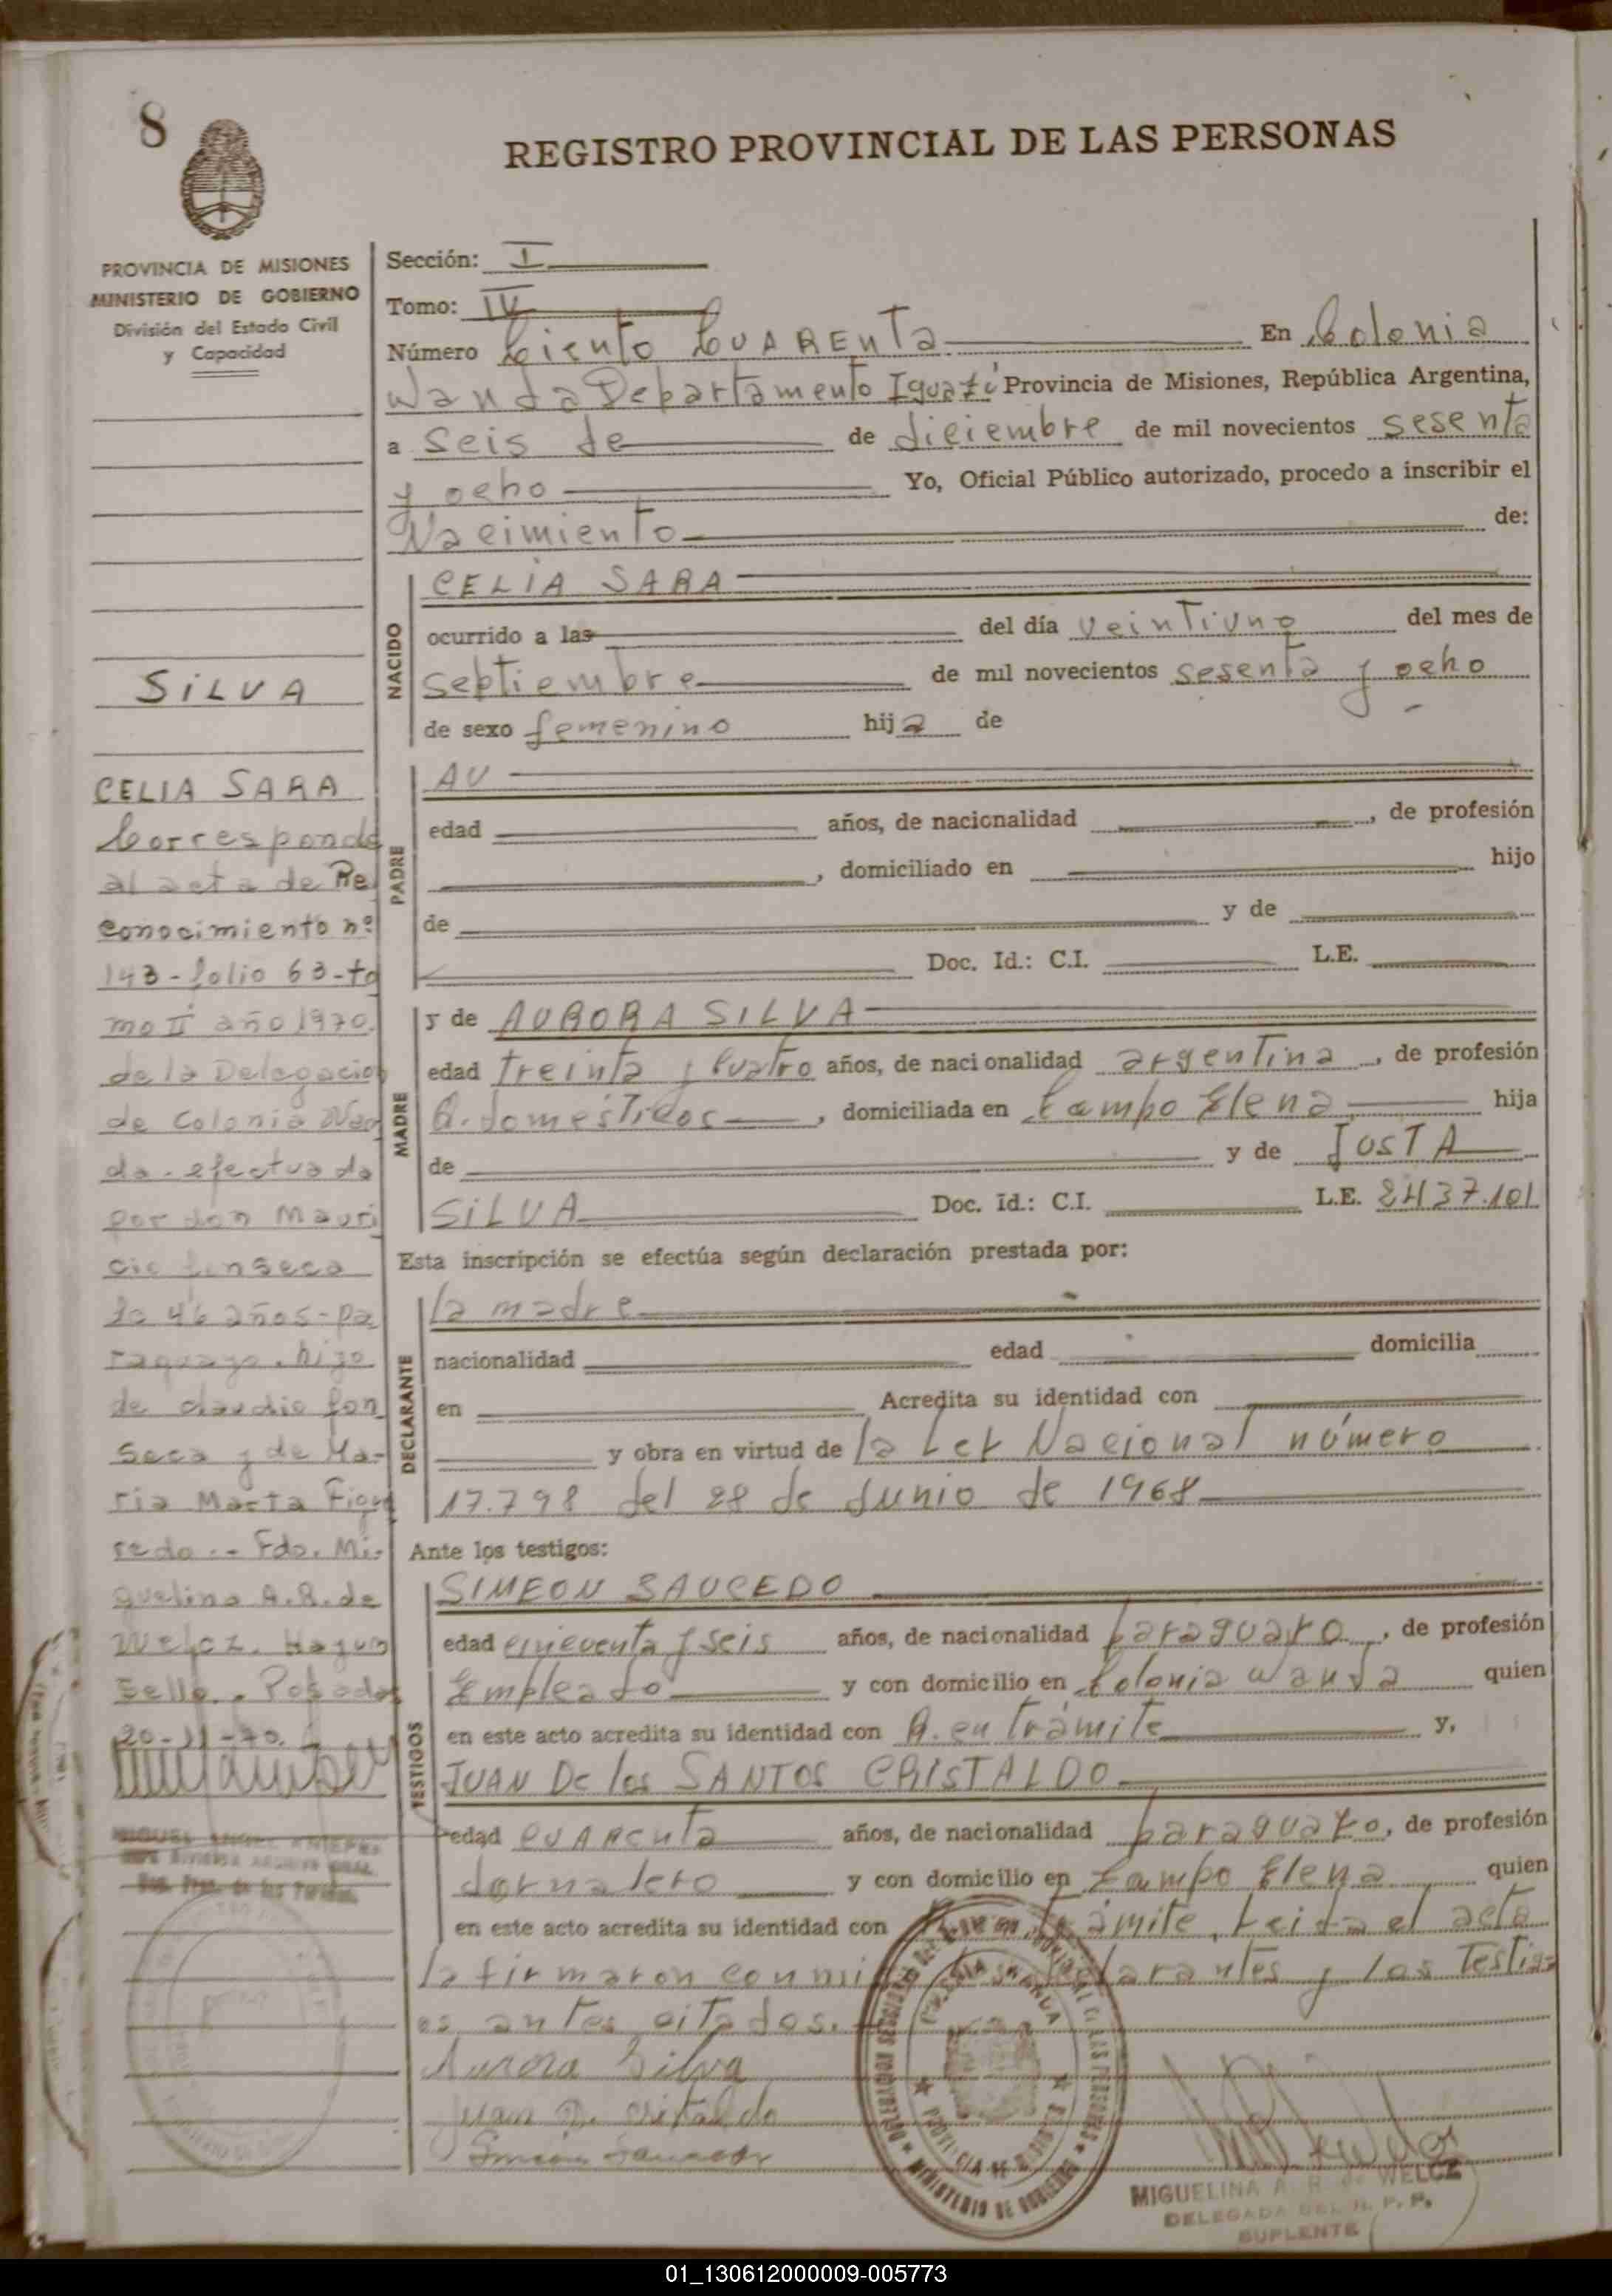 8
REGISTRO PROVINCIAL DE LAS PERSONAS
PROVINCIA DE MISIONES
MINISTERIO DE GOBIERNO
División del Estado Civil
y Capacidad
SILVA
CELIA SARA
Corresponde
al acta de Re
conocimiento nº
143-folio 63-to
mo II año 1970.
de la Delegacion
de Colonia Wan
da. efectuada
por don Mauri
cio Fonseca
de 46 años-pa
raguayo. hijo
de claudio fon
seca y de Ma-
ria Marta Figue
redo.- Fdo. Mi-
guelina A.R. de
Welcz. Hay un
Sello.. Posadas
20-11-70.
Sección: I
Tomo: IV
Número Ciento CUARENTa En Colonia
Wanda Departamento Iguazú Provincia de Misiones, República Argentina,
a seis de de diciembre de mil novecientos sesenta
y ocho Yo, Oficial Público autorizado, procedo a inscribir el
Nacimiento de:
NACIDO
CELIA SARA
ocurrido a las del día veintiuno del mes de
septiembre de mil novecientos sesenta y ocho
de sexo femenino hija de
PADRE
AU
edad años, de nacionalidad , de profesión
, domiciliado en hijo
de y de
Doc. Id.: C.I. L.E.
MADRE
y de AURORA SILVA
edad treinta y cuatro años, de nacionalidad argentina, de profesión
Q. domésticos, domiciliada en Campo Elena hija
de y de JUSTA
SILVA Doc. Id.: C.I. L.E. 2437.101
Esta inscripción se efectúa según declaración prestada por:
DECLARANTE
la madre
nacionalidad edad domicilia
en Acredita su identidad con
y obra en virtud de la Ley Nacional número
17.798 del 28 de Junio de 1968
Ante los testigos:
TESTIGOS
SIMEON SAUCEDO
edad cincuenta y seis años, de nacionalidad paraguayo, de profesión
Empleado y con domicilio en Colonia Wanda quien
en este acto acredita su identidad con A. en trámite y,
JUAN De los SANTOS CRISTALDO
edad CUARENta años, de nacionalidad paraguayo, de profesión
Jornalero y con domicilio en Campo Elena quien
en este acto acredita su identidad con en trámite. Leida el acta
la firmaron conmigo declarantes y los Testig
os antes citados.
Aurora Silva
Juan D. Cristaldo
Simeon Saucedo
MIGUELINA A. R. de WELCZ
DELEGADA DEL R. P. P.
SUPLENTE
01_130612000009-005773